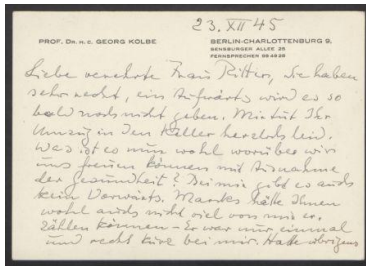 23. XII 45
PROF. DR. H. C. GEORG KOLBE
BERLIN-CHARLOTTENBURG 9,
SENSBURGER ALLEE 25
FERNSPRECHER 99 49 28
Liebe verehrte Frau Ritter, Sie haben
sehr recht, ein Aufwärts wird es so
bald noch nicht geben. Mir tut Ihr
Umzug in den Keller herzlich leid.
Was ist es nun wohl worüber wir
uns freuen können mit Ausnahme
der Gesundheit? Bei mir gibt es auch
kein Vorwärts. Marcks hätte Ihnen
wohl auch nicht viel von mir er-
zählen können – Er war nur einmal
und recht kurz bei mir. Hatte übrigens